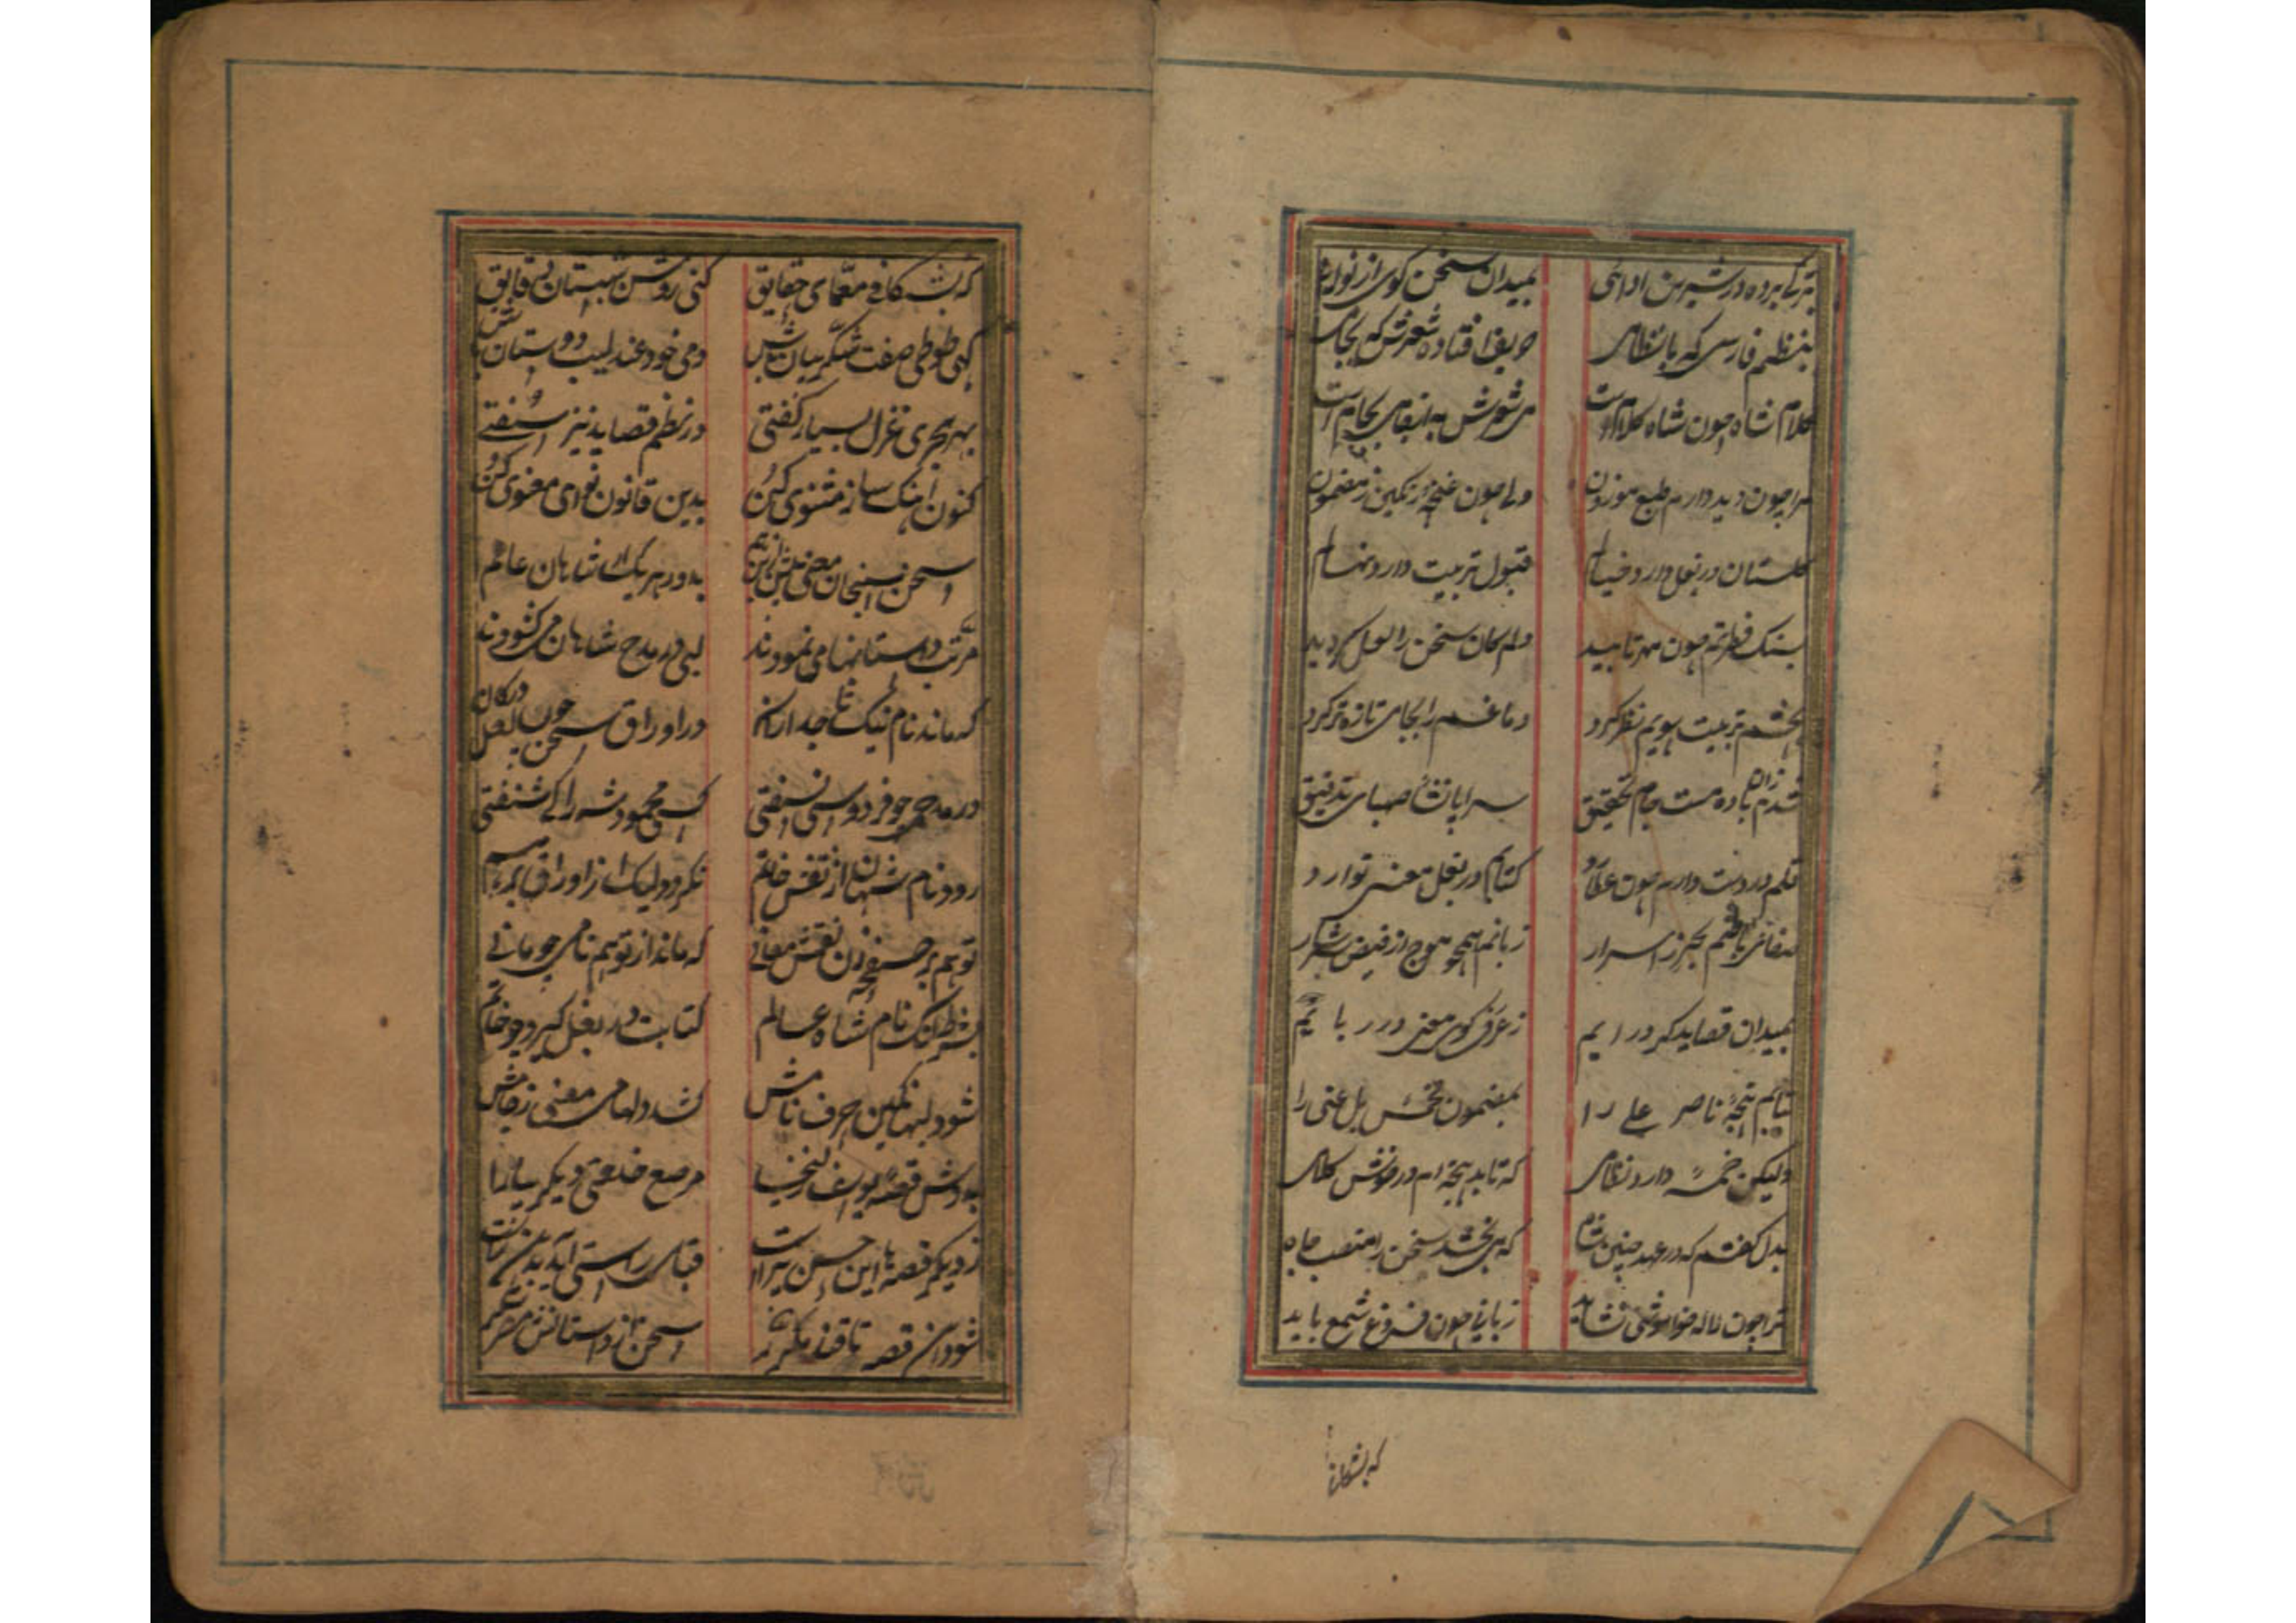 بترکی برده در شیرین ادائی بمیدان سخن کوی از نوائی
بنظم فارسی که با نظامی حریف افتاده شعرش که بجامی
کلام شاه چون شاه کلام است
مرا چون دید دارم طبع موزون دلی چون غنچه رنکین ز مضمون
کلستان در بغل دارد خیالم قبول تربیت دارد نهالم
بسنک فطرتم چون مهر تابید دلم کان سخن را لعل کردید
بچشم تربیت سویم نظر کرد دماغم را بجامی تازه تر کرد
شدم زان باده مست جام تحقیق سراپا نشأ صهبای تدقیق
قلم در دست دارم چون عطارد کتابم در بغل معنی توارد
صفای باطنم بحر ز اسرار زبانم همچو موج از فیض سرشار
بمیدان قصاید کر درایم ز عرفی کوی معنی در ربایم
بتابم پنجهٔ ناصر علی را بمضمون یل غنی را
ولیکن خمسه دارد نظامی که تابد پنجه ام در خوش کلامی
بدل کفتم که در عهد چنین شاه که می بخشد سخن را منصب جاه
ترا چون لاله خواموشی نشاید زبانی چون فروغ شمع باید
که بشکافی
که بشکافی معمای حقایق کنی روشن شبستان دقایق
کهی طوطی صفت شکر بیان باش دمی خود عندلیب دوستان باش
بهر بحری غزل بسیار کفتی در نظم قصاید نیز سفتی
کنون آهنک ساز مثنوی کن بدین قانون نوای معنوی کن
سخن سنجان معنی بیش ازین هم بدور هر یک از شاهان عالم
مرتب داستانها می نمودند لبی در مدح شاهان می کشودند
که ماند نام نیک تاجداران در اوراق سخن چون لعل در کان
در مدحی چو فردوسی نسفتی کسی محمود شه را کی شنفتی
رود نام شهان از نقش خاتم نکردد لیک از اوراق برهم
تو هم بر صفحه زن نقش معانی که ماند از تو هم نامی چو مانی
بشرط آنک نام شاه عالم کتابت در بغل کیرد چو خاتم
شود لبها نکین حرف نامش کشد دلهای معنی
بدوش قصهٔ یوسف زلیخا مرصع خلعتی دیکر بیارا
ز دیکر قصه ها این احسن تر است قبای راستی آید بدین راست
شود این قصه تا قند مکرر سخن از داستانش